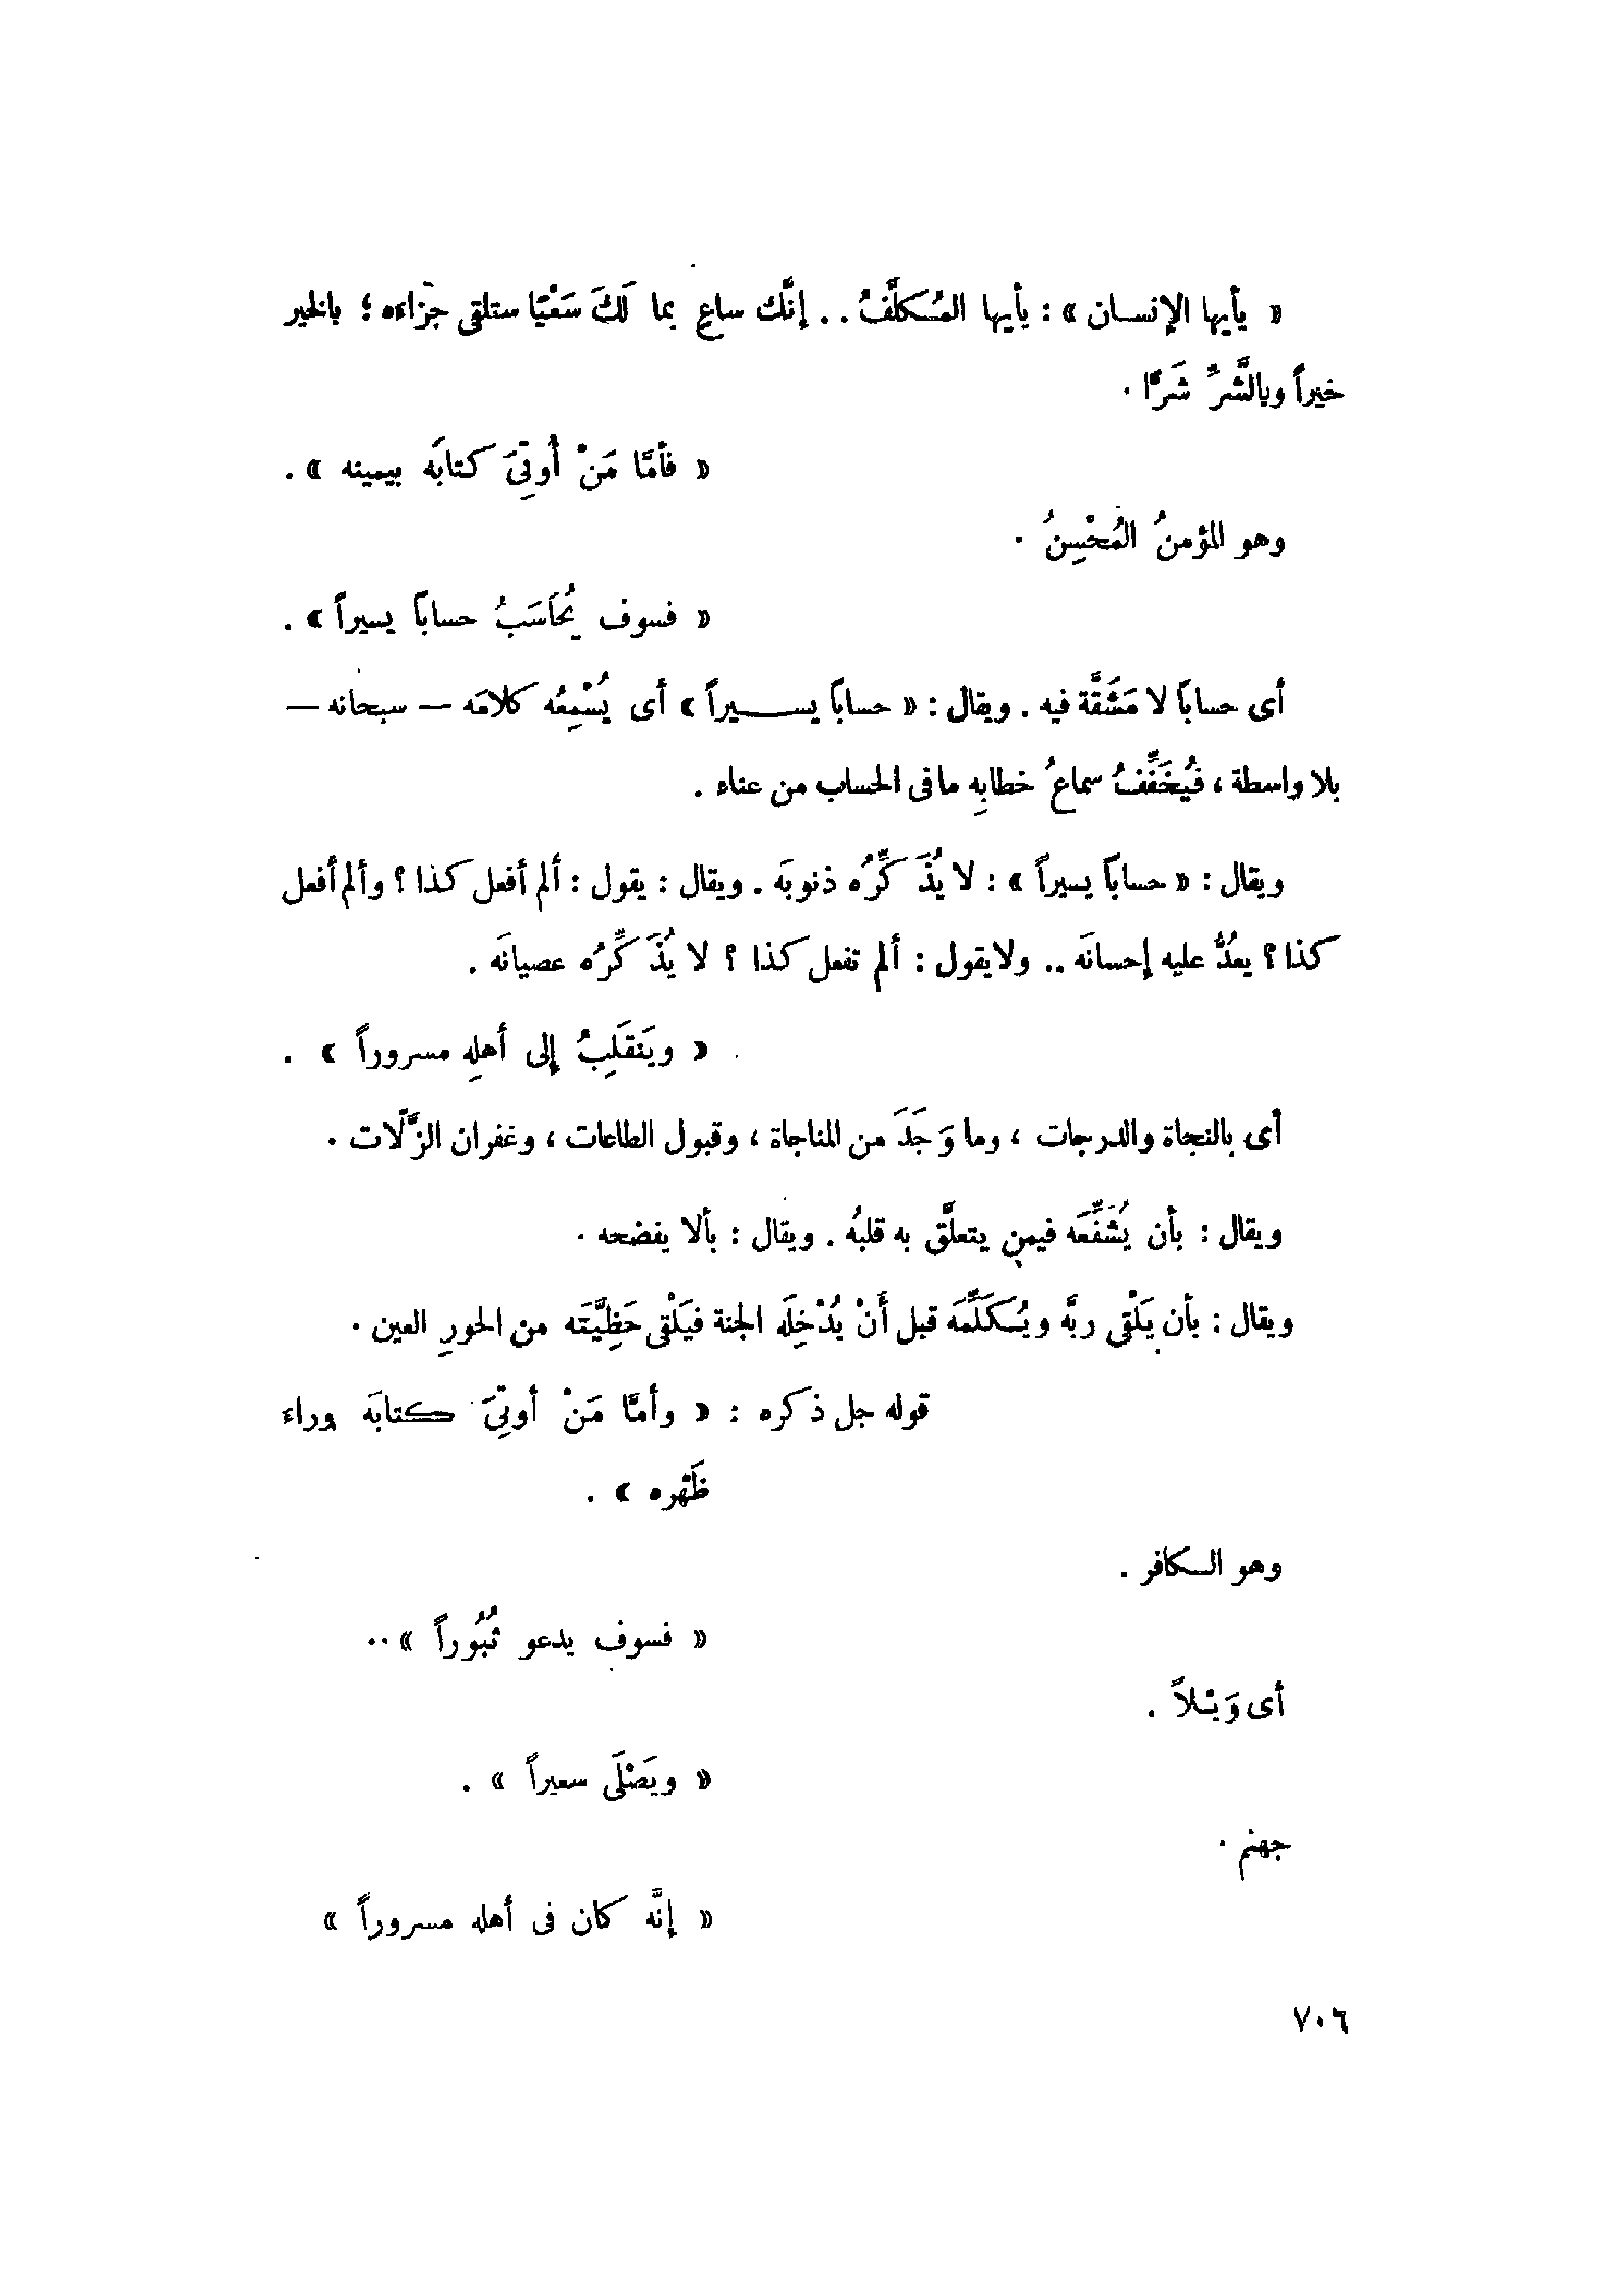 « يأيها الإنسان » : يأيها المُكلَّفُ . . إنَّك ساعٍ بما لَكَ سَعْيًا ستلقى جزاءه ؛ بالخير
خيراً وبالشَّرِّ شَرًّا .
« فأمَّا مَنْ أُوتِىَ كتابَه بيمينه » .
وهو المؤمنُ المُحْسِنُ .
« فسوف يُحَاسَبُ حساباً يسيراً » .
أى حساباً لا مَشَقَّة فيه . ويقال : « حساباً يسيراً » أى يُسْمِعُه كلامَه — سبحانه —
بلا واسطة ، فيُخَفِّفُ سماعُ خطابِه ما فى الحساب من عناء .
ويقال : « حساباً يسيراً » : لا يُذَكِّرُه ذنوبَه . ويقال : يقول : ألم أفعل كذا ؟ وألم أفعل
كذا ؟ يعدُّ عليه إحسانَه .. ولا يقول : ألم تفعل كذا ؟ لا يُذَكِّرُه عصيانَه .
« ويَنقَلِبُ إلى أهلِه مسروراً » .
أى بالنجاة والدرجات ، وما وَجَدَ من المناجاة ، وقبول الطاعات ، وغفران الزَّلّات .
ويقال : بأن يُشَفِّعَه فيمن يتعلَّق به قلبُه . ويقال : بألا يفضحه .
ويقال : بأن يَلْقى ربَّه ويُكَلِّمَه قبل أَنْ يُدْخِلَه الجنة فيَلْقى حَظِيَّتَه من الحورِ العين .
قوله جل ذكره : « وأمَّا مَنْ أوتِىَ كتابَه وراء
ظَهره » .
وهو الكافر .
« فسوف يدعو ثُبُوراً » ..
أى وَيْلاً .
« ويَصْلَى سعيراً » .
جهنم .
« إنَّه كان فى أهله مسروراً »
٧٠٦